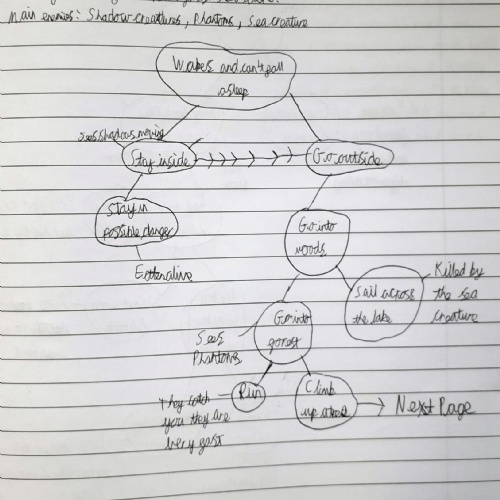 Main enemies: Shadow creatures, Phantoms, Sea creature
Wakes and can't fall
asleep
sees shadows moving
Stay inside
Go outside
Stay in
possible danger
Go into
woods
End
Sail across
the lake
Killed by
the sea
creature
Go into
forest
Sees
Phantoms
Run
They catch
you they are
very fast
Climb
up a tree
Next Page